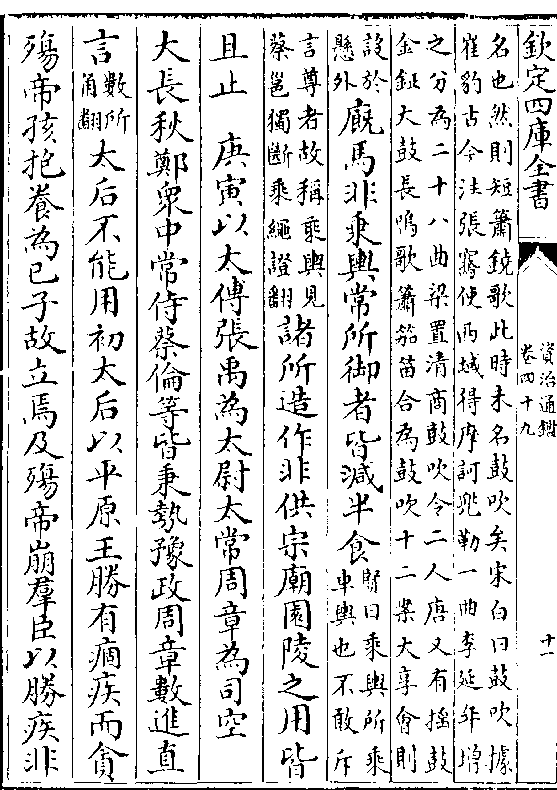 欽定四庫全書
資治通鑑
卷四十九
十一
名也然則短簫鐃歌此時未名鼓吹矣宋白曰鼓吹據
崔豹古今注張騫使西域得摩訶兜勒一曲李延年增
之分為二十八曲梁置清商鼓吹令二人唐又有搊鼓
金鉦大鼓長鳴歌簫笳笛合為鼓吹十二案大享會則
設於
懸外
廐馬非乗輿常所御者皆減半食
賢曰乗輿所乗
車輿也不敢斥
言尊者故稱乗輿見
蔡邕獨斷乗繩證翻
諸所造作非供宗廟園陵之用皆
且止　庚寅以太傅張禹為太尉太常周章為司空
大長秋鄭衆中常侍蔡倫等皆秉勢豫政周章數進直
言
數所
角翻
太后不能用初太后以平原王勝有痼疾而貪
殤帝孩抱養為已子故立焉及殤帝崩羣臣以勝疾非